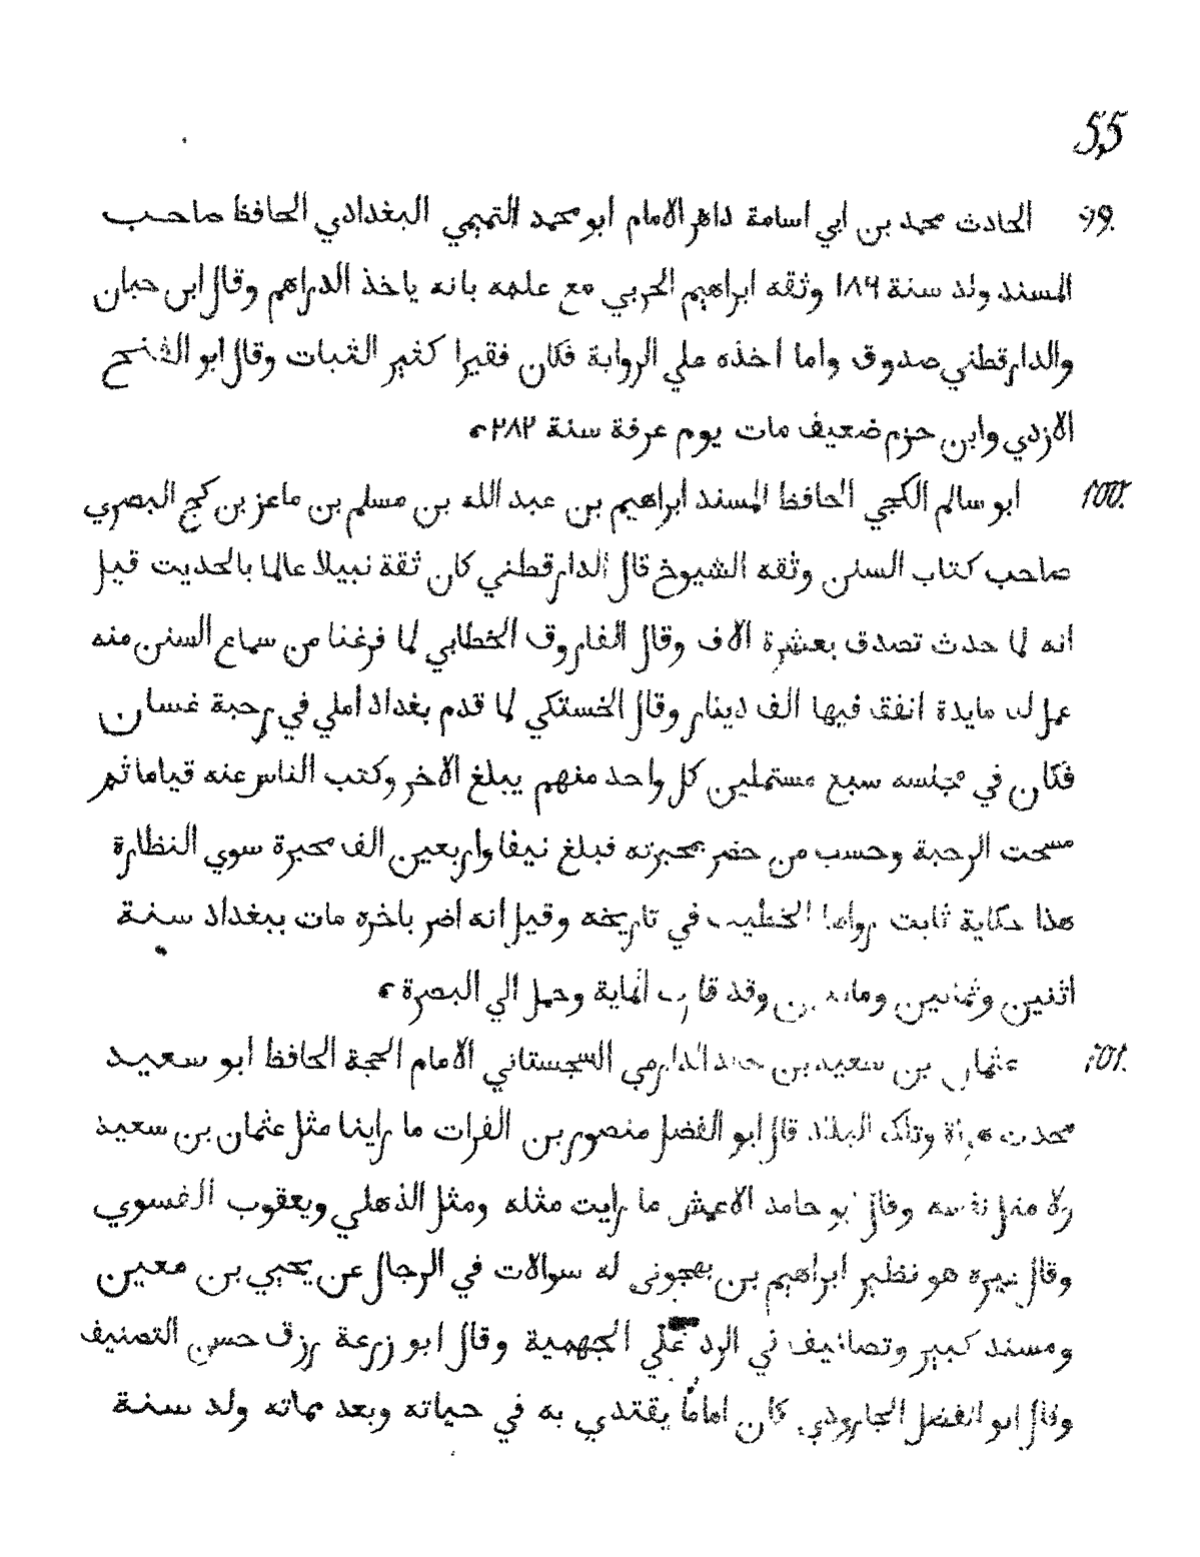 55
99. الحادث محمد بن ابي اسامة داهر الامام ابو محمد التميمي البغدادي الحافظ صاحب
المسند ولد سنة ١٨٦ وثقه ابراهيم الحربي مع علمه بانه ياخذ الدراهم وقال ابن حبان
والدارقطني صدوق واما اخذه علي الرواية فكان فقيرا كثير الثبات وقال ابو الفتح
الازدي وابن حزم ضعيف مات يوم عرفة سنة ٢٨٢ ء
100. ابو سالم الكجي الحافظ المسند ابراهيم بن عبد الله بن مسلم بن ماعز بن كج البصري
صاحب كتاب السنن وثقه الشيوخ قال الدارقطني كان ثقة نبيلا عالما بالحديت قيل
انه لما حدث تصدق بعشرة الاف وقال الفاروق الخطابي لما فرغنا من سماع السنن منه
عمل لنا مايدة انفق فيها الف دينار وقال الخستكي لما قدم بغداد املي في رحبة غسان
فكان في مجلسه سبع مستملين كل واحد منهم يبلغ الاخر وكتب الناس عنه قياما ثم
مسحت الرحبة وحسب من حضر بمحبرته فبلغ نيفا واربعين الف محبرة سوي النظارة
هذا حكاية ثابت رواها الخطيب في تاريخه وقيل انه اضر باخره مات ببغداد سنة
اثنين وثمانين ومايتين وقد قارب الماية وحمل الي البصرة ء
101. عثمان بن سعيد بن خالد الدارمي السجستاني الامام الحجة الحافظ ابو سعيد
محدث هراة وتلك البلاد قال ابو الفضل منصور بن الفرات ما راينا مثل عثمان بن سعيد
ولا مثل نفسه وقال ابو حامد الاعمش ما رايت مثله ومثل الذهلي ويعقوب الفسوي
وقال غيره هو نظير ابراهيم بن بهجونى له سوالات في الرجال عن يحيي بن معين
ومسند كبير وتصانيف في الرد علي الجهمية وقال ابو زرعة رزق حسن التصنيف
وقال ابو الفضل الجارودي كان اماما يقتدي به في حياته وبعد مماته ولد سنة